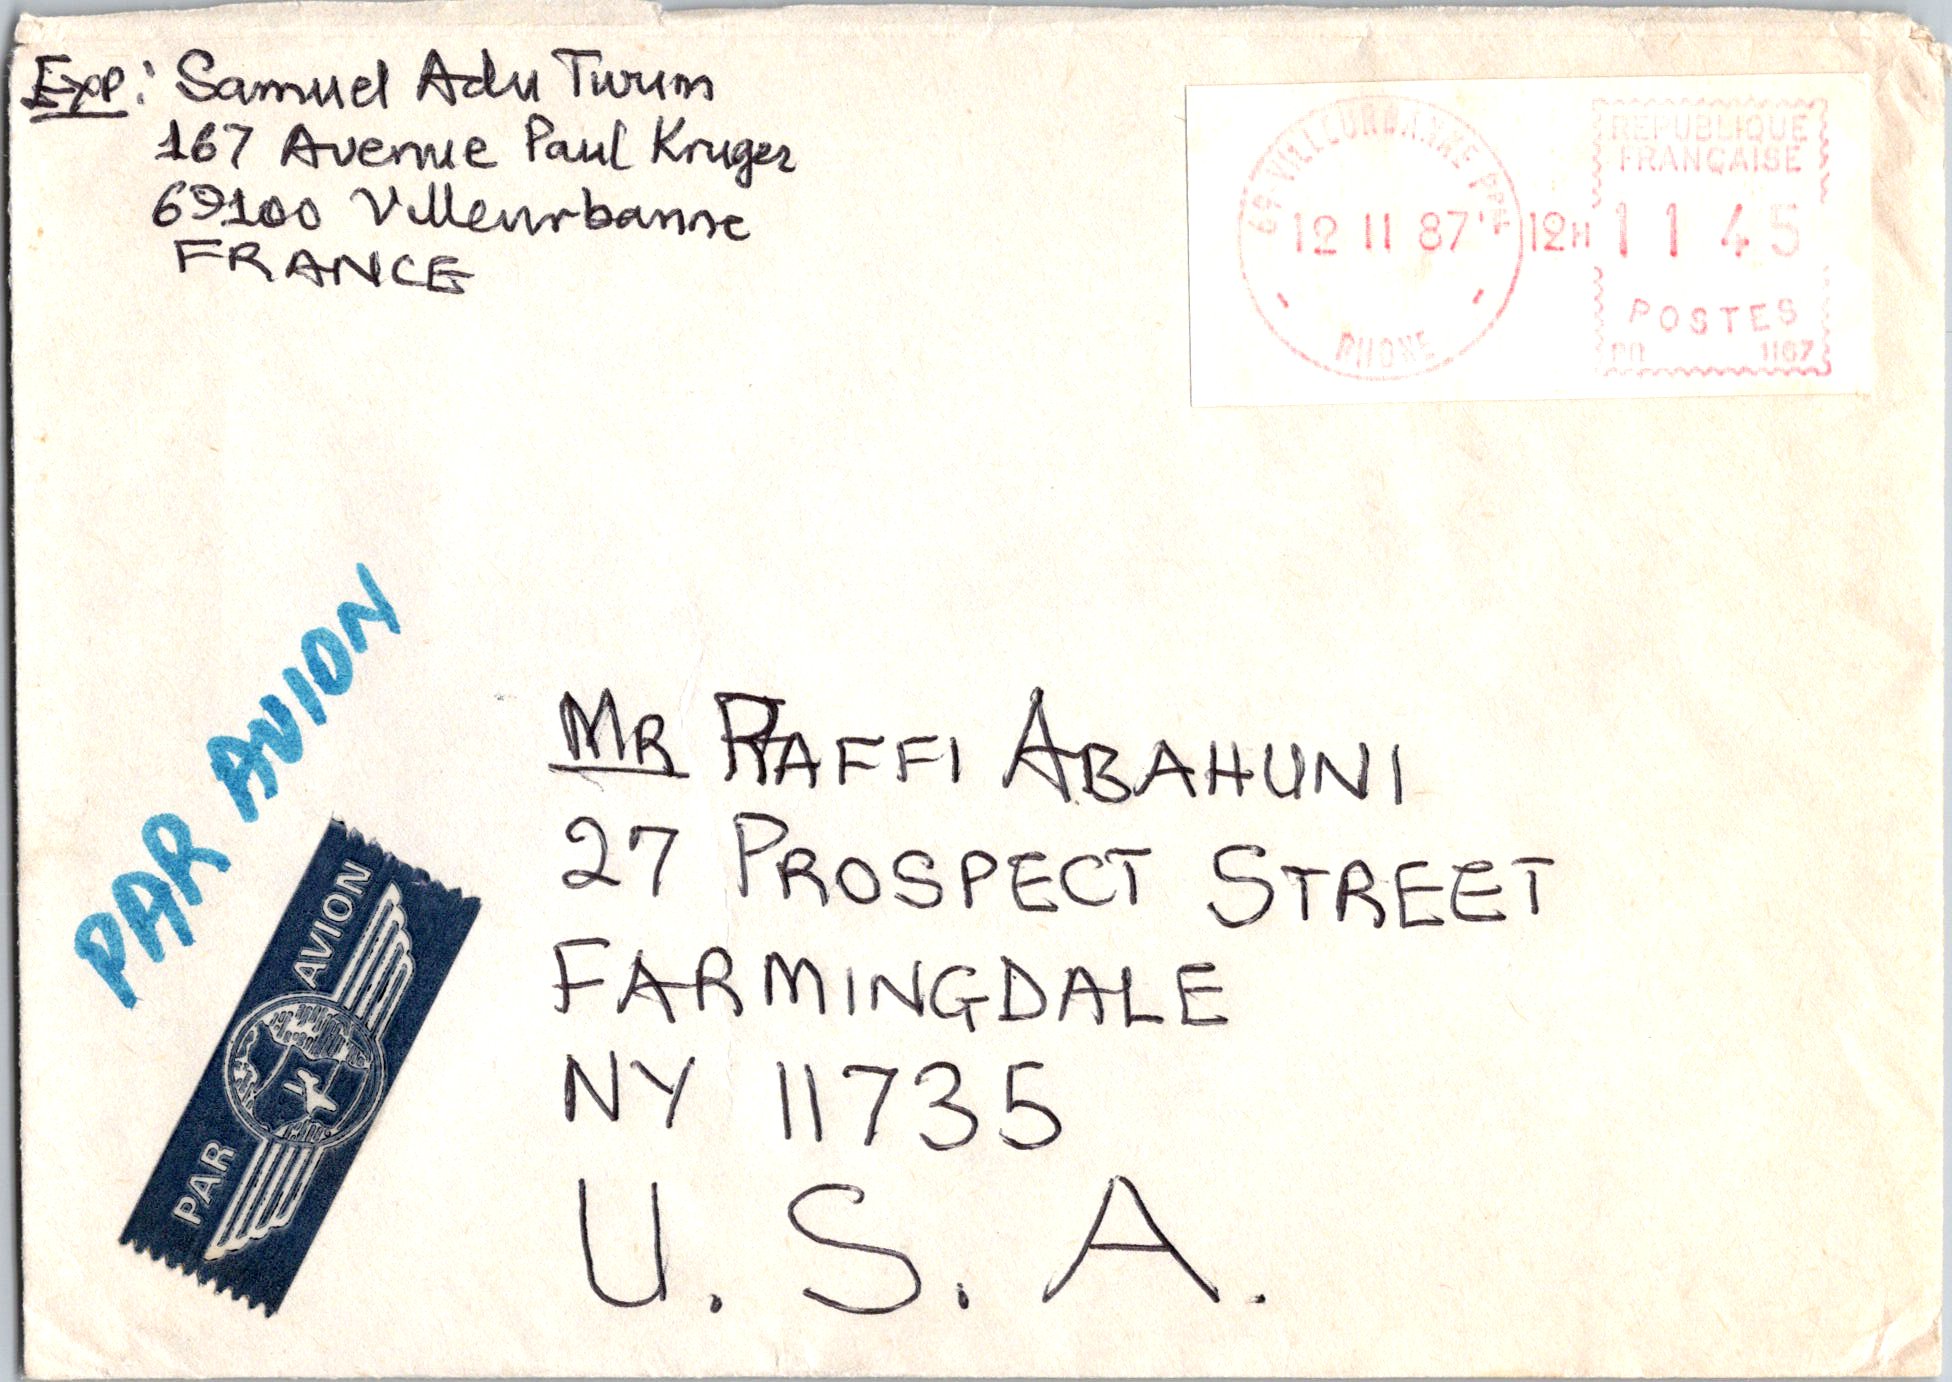 Exp: Samuel Adu Twum
167 Avenue Paul Kruger
69100 Villeurbanne
FRANCE
69 VILLEURBANNE PPAL
12 11 87
RHONE
12H
REPUBLIQUE
FRANÇAISE
11 45
POSTES
1167
PAR AVION
PAR AVION
MR RAFFI ABAHUNI
27 PROSPECT STREET
FARMINGDALE
NY 11735
U.S.A.